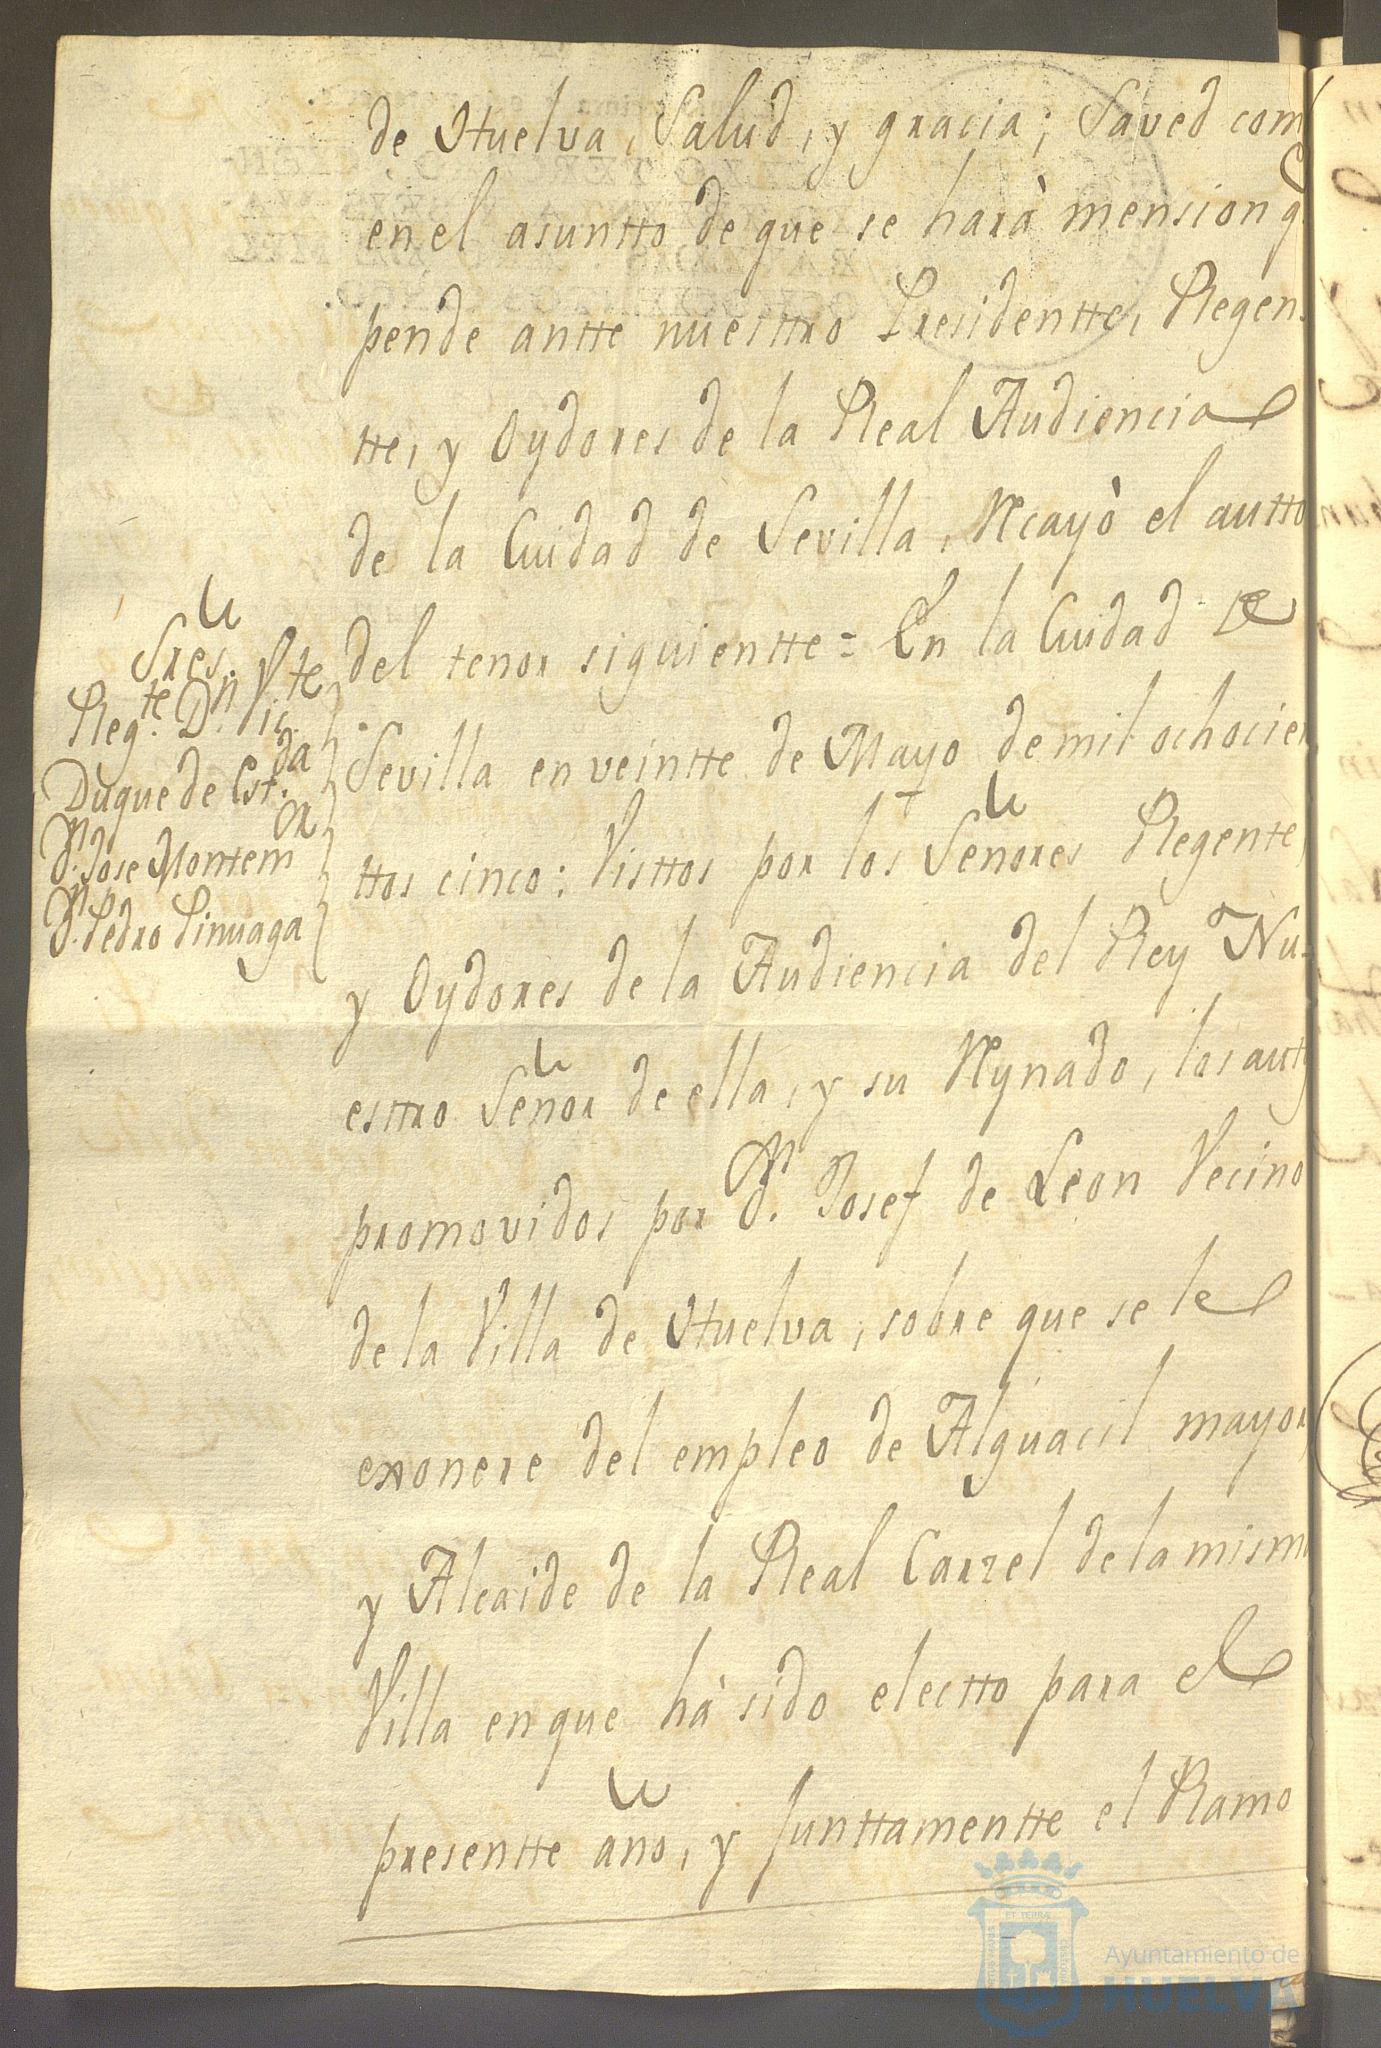 de Huelva, Salud, y gracia; Saved como
en el asuntto de que se hará mension q.
pende antte nuesttro Presidentte, Regen-
tte, y Oydores de la Real Audiencia
de la Ciudad de Sevilla, Recayò el autto
del tenor siguientte = En la Ciudad de
Sres.
Regte. Dn. Vte
Duque de Estda.
Dn. Jose Montemor
Dn. Pedro Pinuaga
Sevilla en veintte de Mayo de mil ochocien
ttos cinco: Visttos por los Señores Regente,
y Oydores de la Audiencia del Rey Nu-
esttro Señor de ella, y su Reynado, los autt
promovidos por Dn. Josef de Leon Vecino
de la Villa de Huelva, sobre que se le
exonere del empleo de Alguacil mayor,
y Alcaide de la Real Carzel de la misma
Villa en que hà sido electto para el
presentte año, y Junttamentte el Ramo
Ayuntamiento de
HUELVA